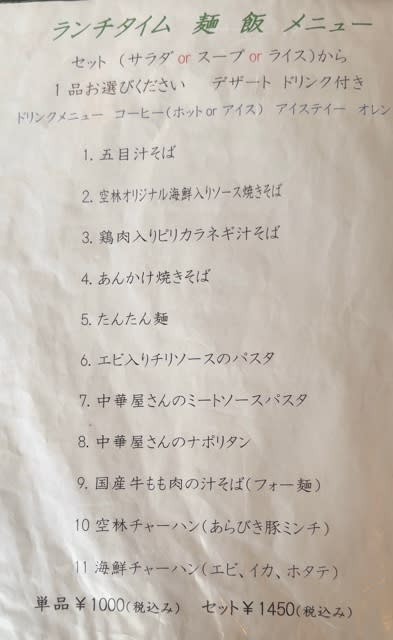 ランチタイム 麺 飯 メニュー
セット (サラダ or スープ or ライス)から
1品お選びください デザート ドリンク付き
ドリンクメニュー コーヒー(ホット or アイス) アイスティー オレン
1. 五目汁そば
2. 空林オリジナル海鮮入りソース焼きそば
3. 鶏肉入りピリカラネギ汁そば
4. あんかけ焼きそば
5. たんたん麺
6. エビ入りチリソースのパスタ
7. 中華屋さんのミートソースパスタ
8. 中華屋さんのナポリタン
9. 国産牛もも肉の汁そば(フォー麺)
10 空林チャーハン(あらびき豚ミンチ)
11 海鮮チャーハン(エビ、イカ、ホタテ)
単品¥1000(税込み) セット¥1450(税込み)